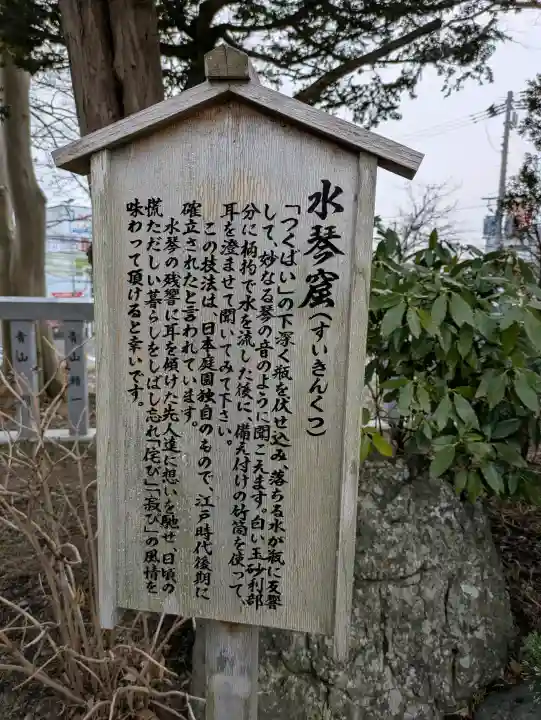 水琴窟(すいきんくつ)
「つくばい」の下深く瓶を伏せ込み、落ちる水が瓶に反響
して、妙なる琴の音のように聞こえます。白い玉砂利部
分に柄杓で水を流した後に、備え付けの竹筒を使って、
耳を澄ませて聞いてみて下さい。
この技法は、日本庭園独自のもので、江戸時代後期に
確立されたと言われています。
水琴の残響に耳を傾けた先人達に想いを馳せ、日頃の
慌ただしい暮らしをしばし忘れ「侘び」「寂び」の風情を
味わって頂けると幸いです。
青山
青山